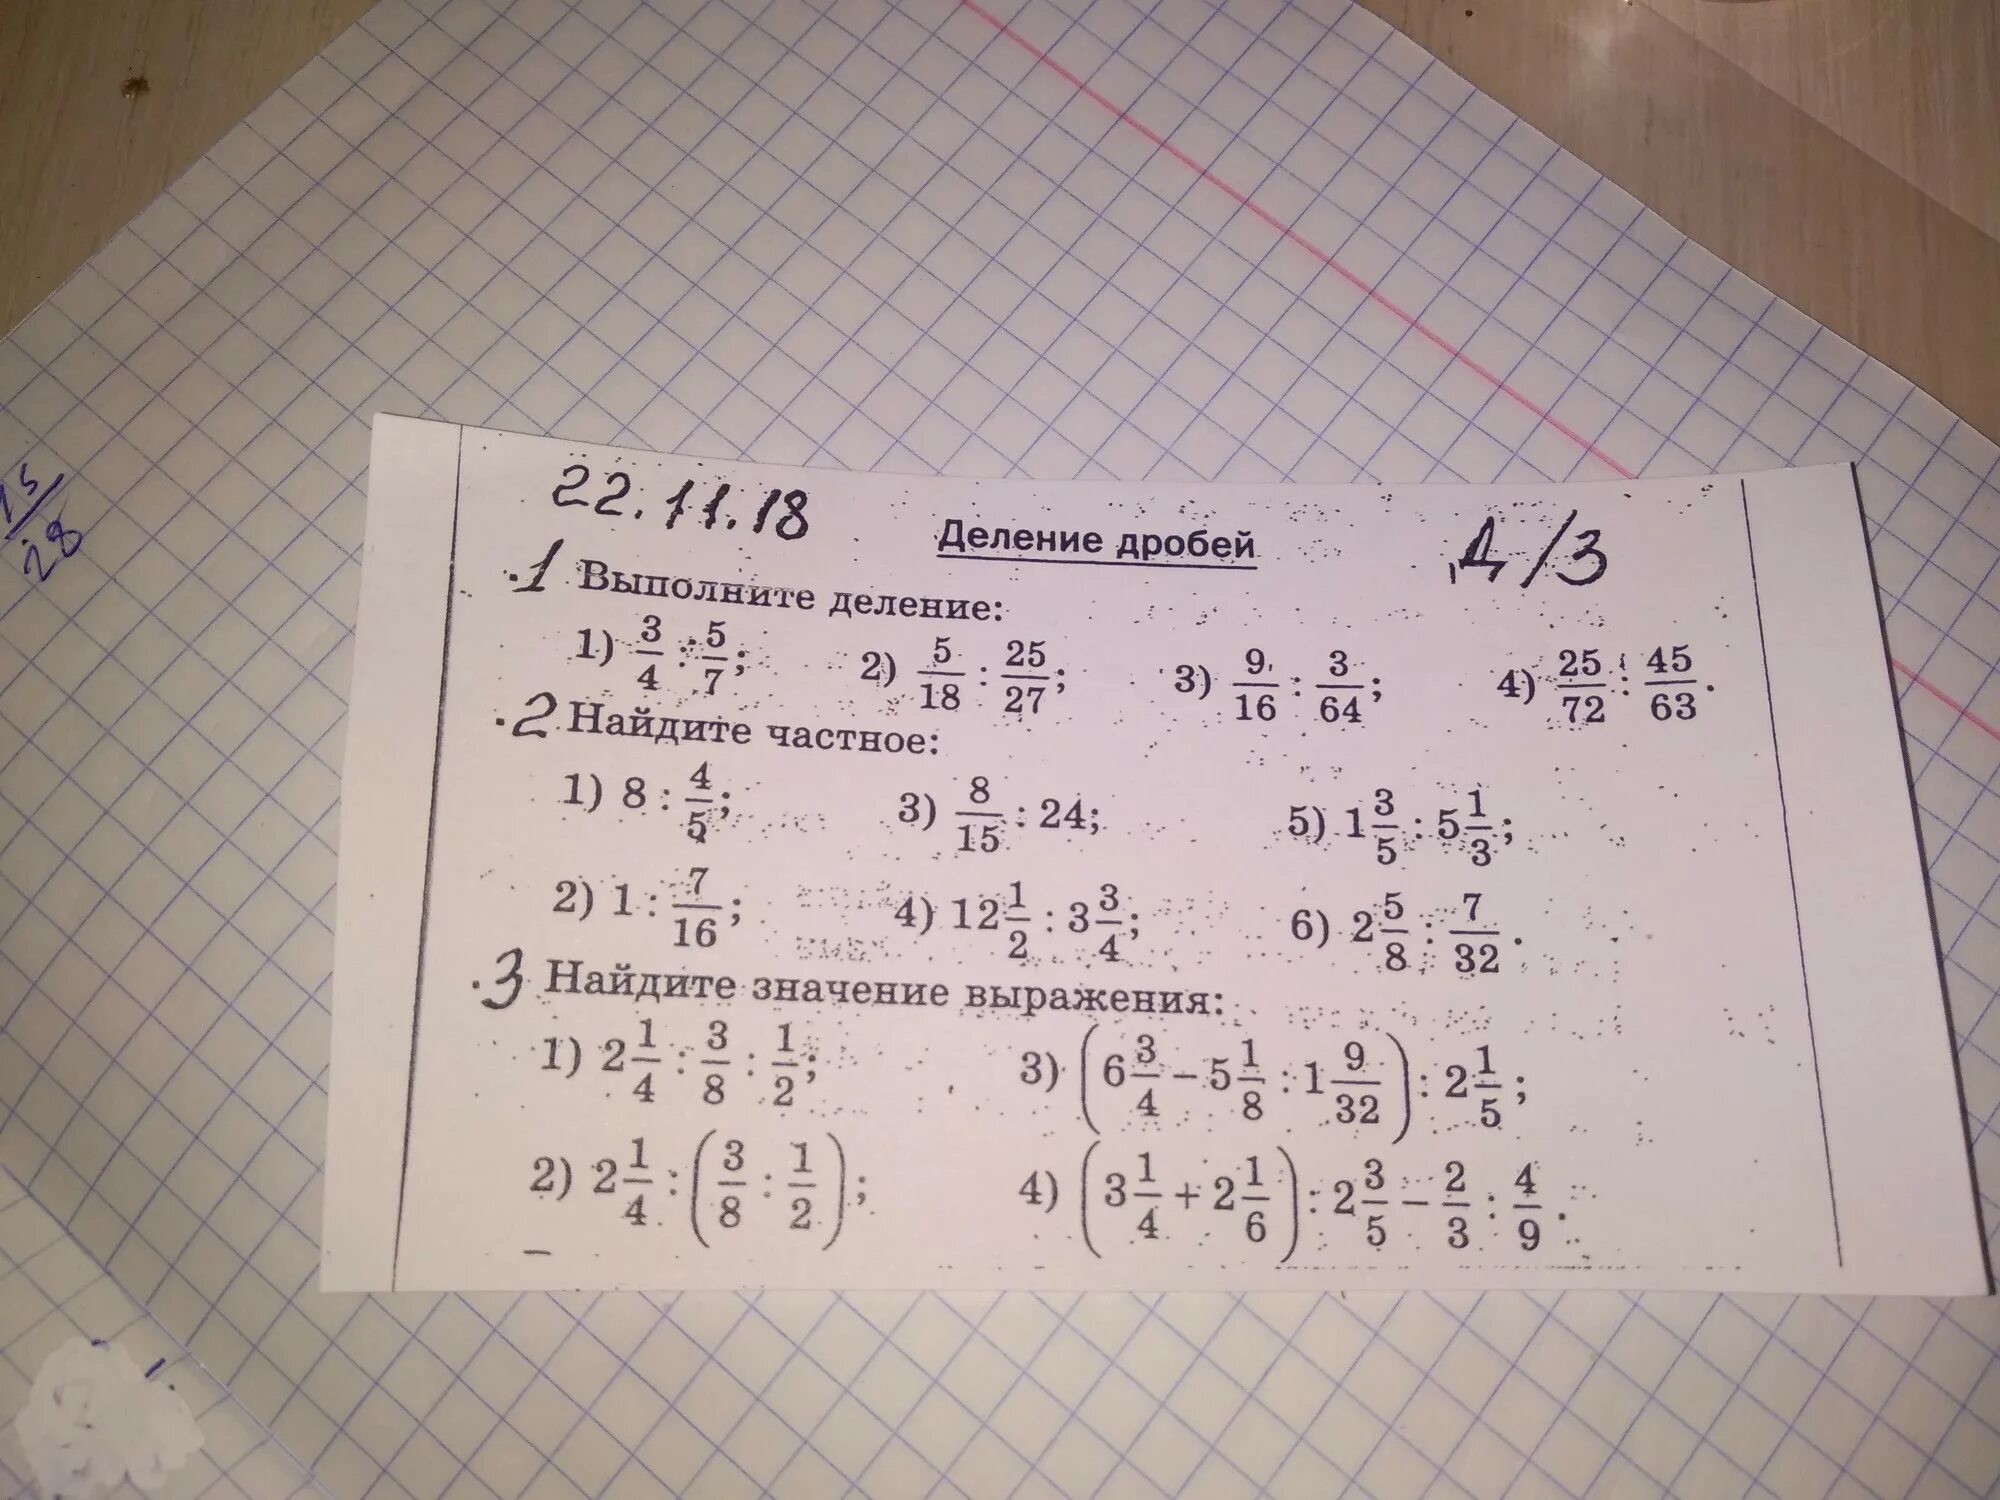 15/28
22.11.18 Деление дробей Д/З
.1 Выполните деление:
1) 3/4 : 5/7; 2) 5/18 : 25/27; 3) 9/16 : 3/64; 4) 25/72 : 45/63.
.2 Найдите частное:
1) 8 : 4/5; 3) 8/15 : 24; 5) 1 3/5 : 5 1/3;
2) 1 : 7/16; 4) 12 1/2 : 3 3/4; 6) 2 5/8 : 7/32.
.3 Найдите значение выражения:
1) 2 1/4 : 3/8 : 1/2; 3) (6 3/4 − 5 1/8 : 1 9/32) : 2 1/5;
2) 2 1/4 : (3/8 : 1/2); 4) (3 1/4 + 2 1/6) : 2 3/5 − 2/3 : 4/9.